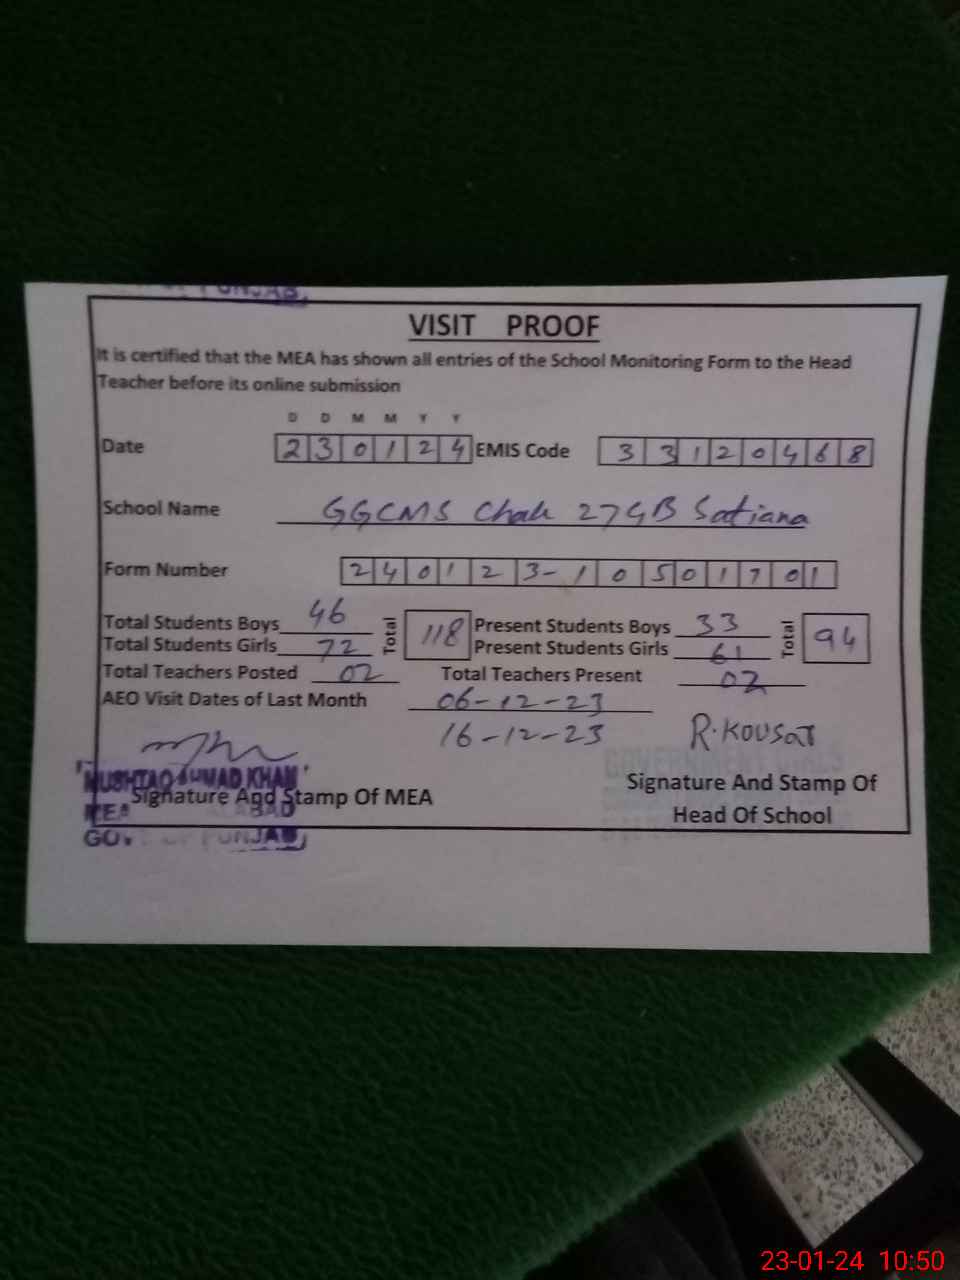 PUNJAB,
VISIT PROOF
It is certified that the MEA has shown all entries of the School Monitoring Form to the Head
Teacher before its online submission
D D M M Y Y
Date 2 3 0 1 2 4 EMIS Code 3 3 1 2 0 4 6 8
School Name GGCMS Chak 27GB Satiana
Form Number 2 4 0 1 2 3 - 1 0 5 0 1 7 0 1
Total Students Boys 46 Total 118 Present Students Boys 33 Total 94
Total Students Girls 72 Present Students Girls 61
Total Teachers Posted 02 Total Teachers Present 02
AEO Visit Dates of Last Month 06-12-23
16-12-23 R.Kousar
GOVERNMENT GIRLS
MUSHTAQ AHMAD KHAN
Signature And Stamp Of MEA Signature And Stamp Of
MEA
Head Of School
GOVT OF PUNJAB,
23-01-24 10:50